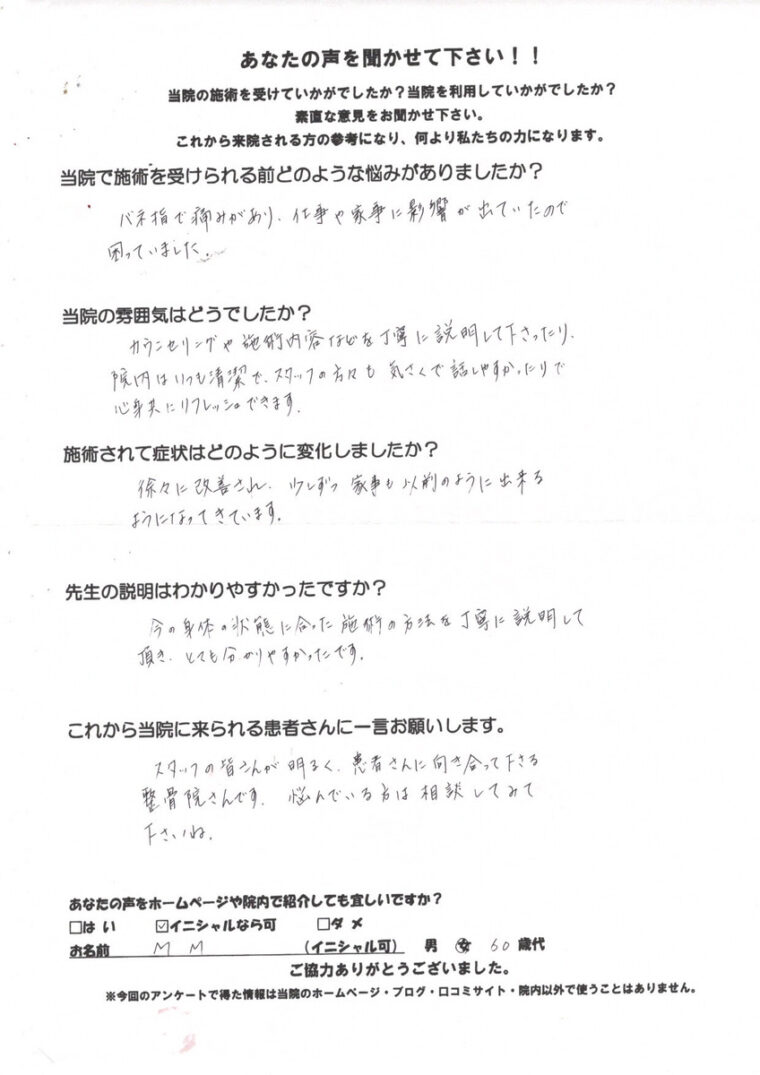 あなたの声を聞かせて下さい！！
当院の施術を受けていかがでしたか？当院を利用していかがでしたか？
素直な意見をお聞かせ下さい。
これから来院される方の参考になり、何より私たちの力になります。
当院で施術を受けられる前どのような悩みがありましたか？
バネ指で痛みがあり、仕事や家事に影響が出ていたので
困っていました。
当院の雰囲気はどうでしたか？
カウンセリングや施術内容などを丁寧に説明して下さったり、
院内はいつも清潔で、スタッフの方々も気さくで話しやすかったりで
心身共にリフレッシュできます。
施術されて症状はどのように変化しましたか？
徐々に改善され、少しずつ家事も以前のように出来る
ようになってきています。
先生の説明はわかりやすかったですか？
今の身体の状態に合った施術の方法を丁寧に説明して
頂き、とても分かりやすかったです。
これから当院に来られる患者さんに一言お願いします。
スタッフの皆さんが明るく、患者さんに向き合って下さる
整骨院さんです。悩んでいる方は相談してみて
下さいね。
あなたの声をホームページや院内で紹介しても宜しいですか？
□はい ☑イニシャルなら可 □ダメ
お名前 M M (イニシャル可) 男 女 60歳代
ご協力ありがとうございました。
※今回のアンケートで得た情報は当院のホームページ・ブログ・口コミサイト・院内以外で使うことはありません。